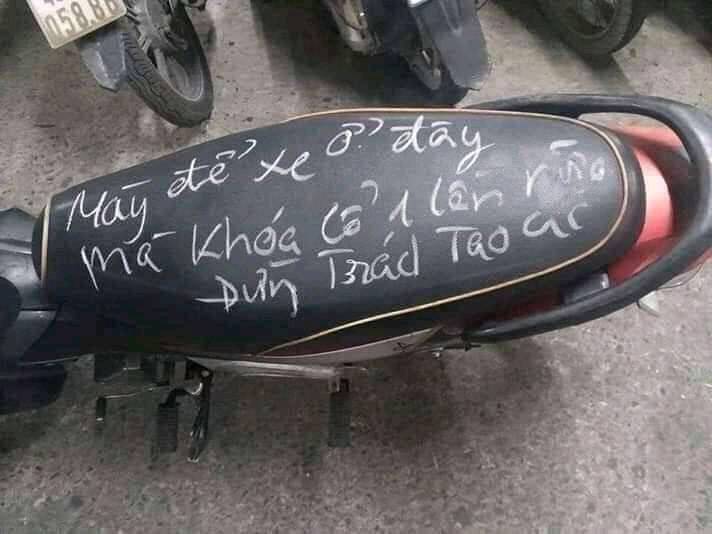 058.88
Mày để xe ở đây
mà khóa cổ 1 lần nữa
Đừng Trách Tao ác